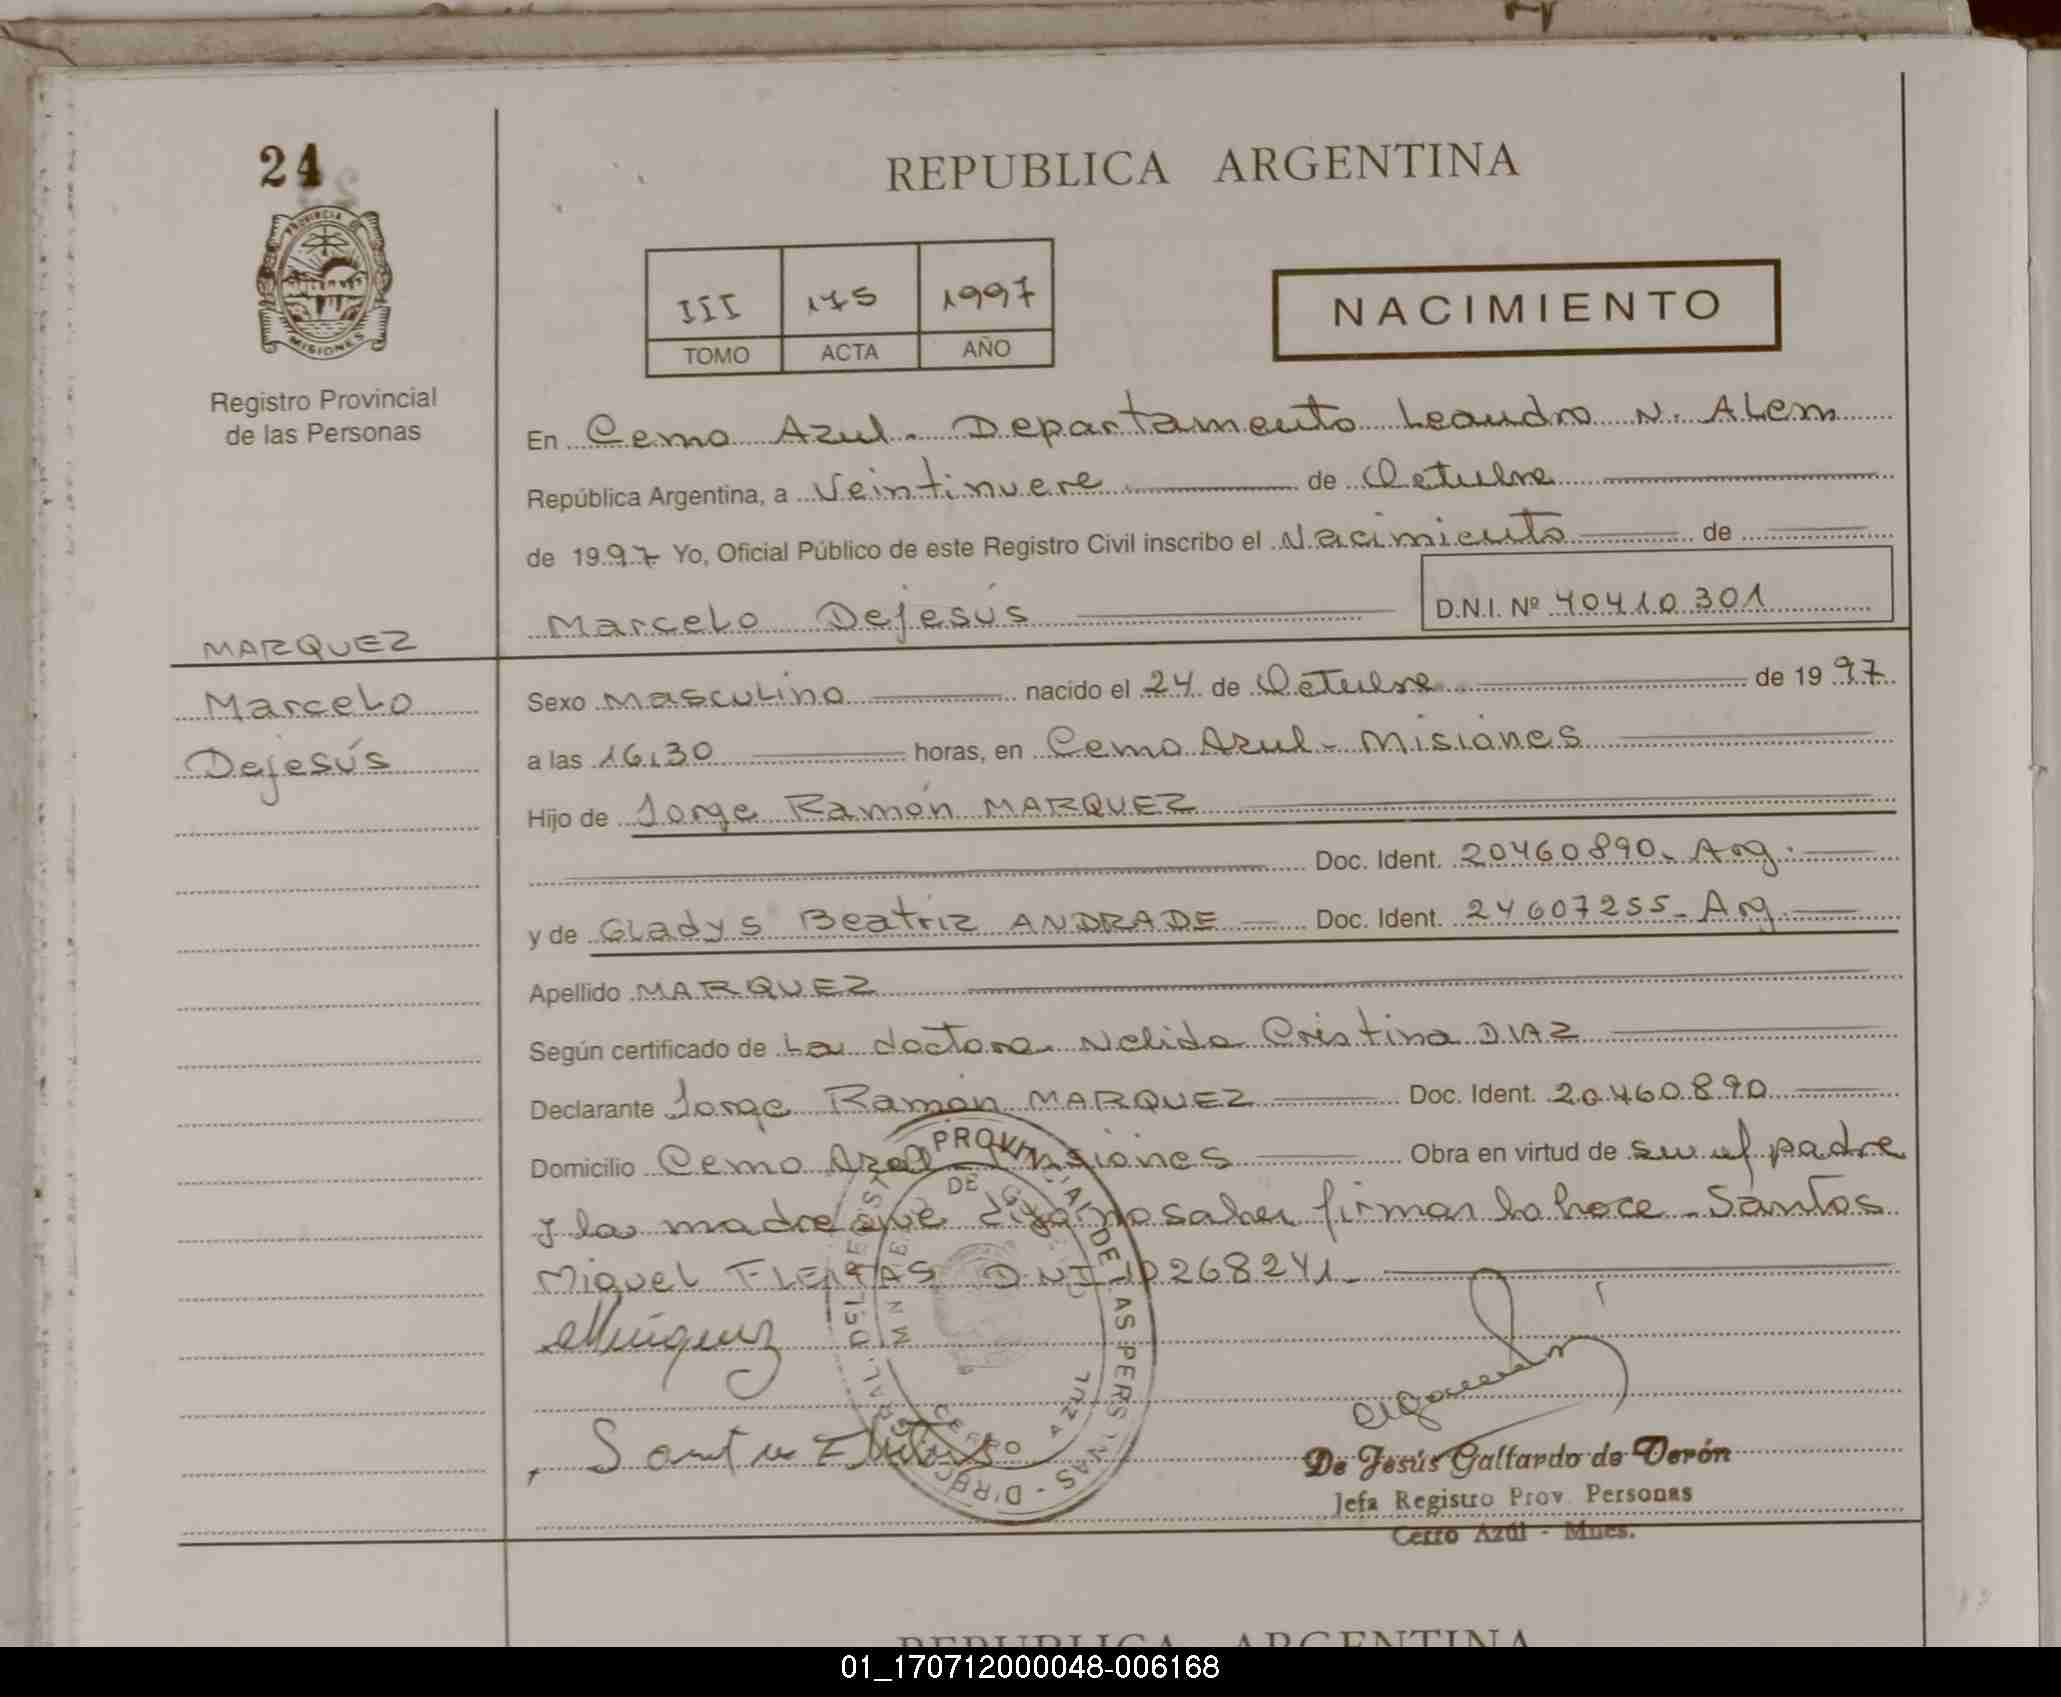 24
REPUBLICA ARGENTINA
PROVINCIA DE
MISIONES
III 175 1997
TOMO ACTA AÑO
NACIMIENTO
Registro Provincial
de las Personas
En Cerro Azul. Departamento Leandro N. Alem
República Argentina, a Veintinueve de Octubre
de 1997 Yo, Oficial Público de este Registro Civil inscribo el Nacimiento de
Marcelo Dejesús D.N.I. Nº 40410301
MARQUEZ
Marcelo
Dejesús
Sexo Masculino nacido el 24 de Octubre de 1997
a las 16,30 horas, en Cerro Azul - Misiones
Hijo de Jorge Ramón MARQUEZ
Doc. Ident. 20460890. Arg.
y de Gladys Beatriz ANDRADE Doc. Ident. 24607255- Arg.
Apellido MARQUEZ
Según certificado de La doctora Nelida Cristina DIAZ
Declarante Jorge Ramón MARQUEZ Doc. Ident. 20.460.890
Domicilio Cerro Azul - Misiones Obra en virtud de su el padre
y la madre que dijo no saber firmar lo hace - Santos
Miguel FLEITAS DNI 10268241-
PROVINCIAL DE LAS PERSONAS - DIRECC
CERRO AZUL
De Jesús Gallardo de Verón
Jefa Registro Prov. Personas
Cerro Azúl - Mnes.
REPUBLICA ARGENTINA
01_170712000048-006168